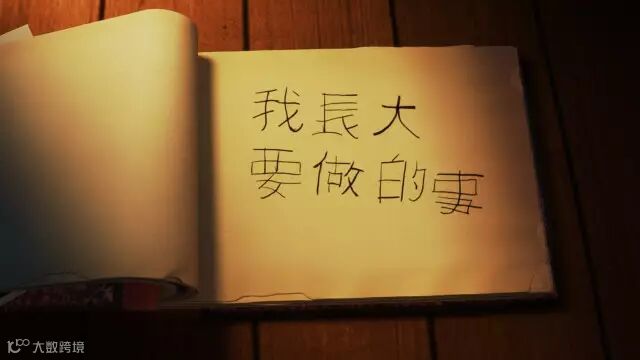 我長大
要做的事
大数跨境